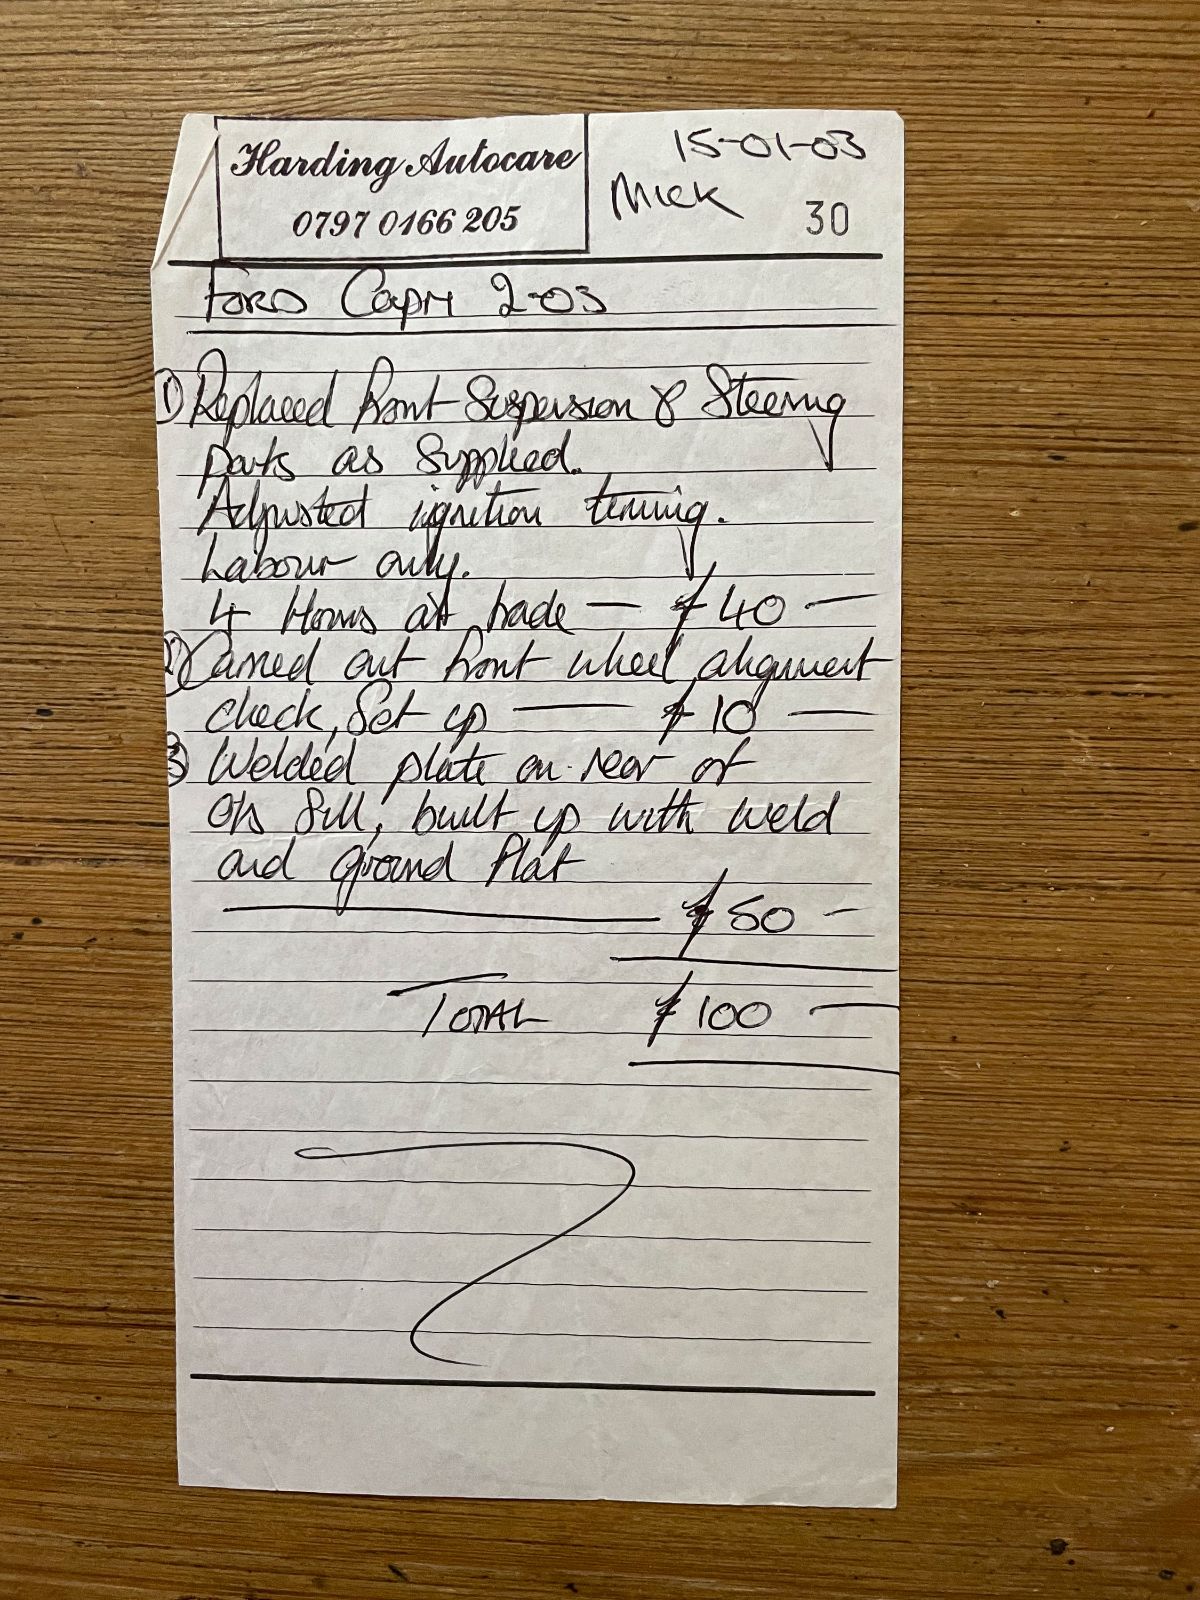 Harding Autocare
0797 0166 205
15-01-03
Mick
30
Ford Capri 2-03
1) Replaced front Suspension & Steering
parts as supplied.
Adjusted ignition timing.
Labour only.
4 Hours at trade — £40 —
2) Carried out front wheel alignment
check, Set up — £10 —
3) Welded plate on rear of
O/S Sill, built up with weld
and ground flat
— £50 —
TOTAL £100 —